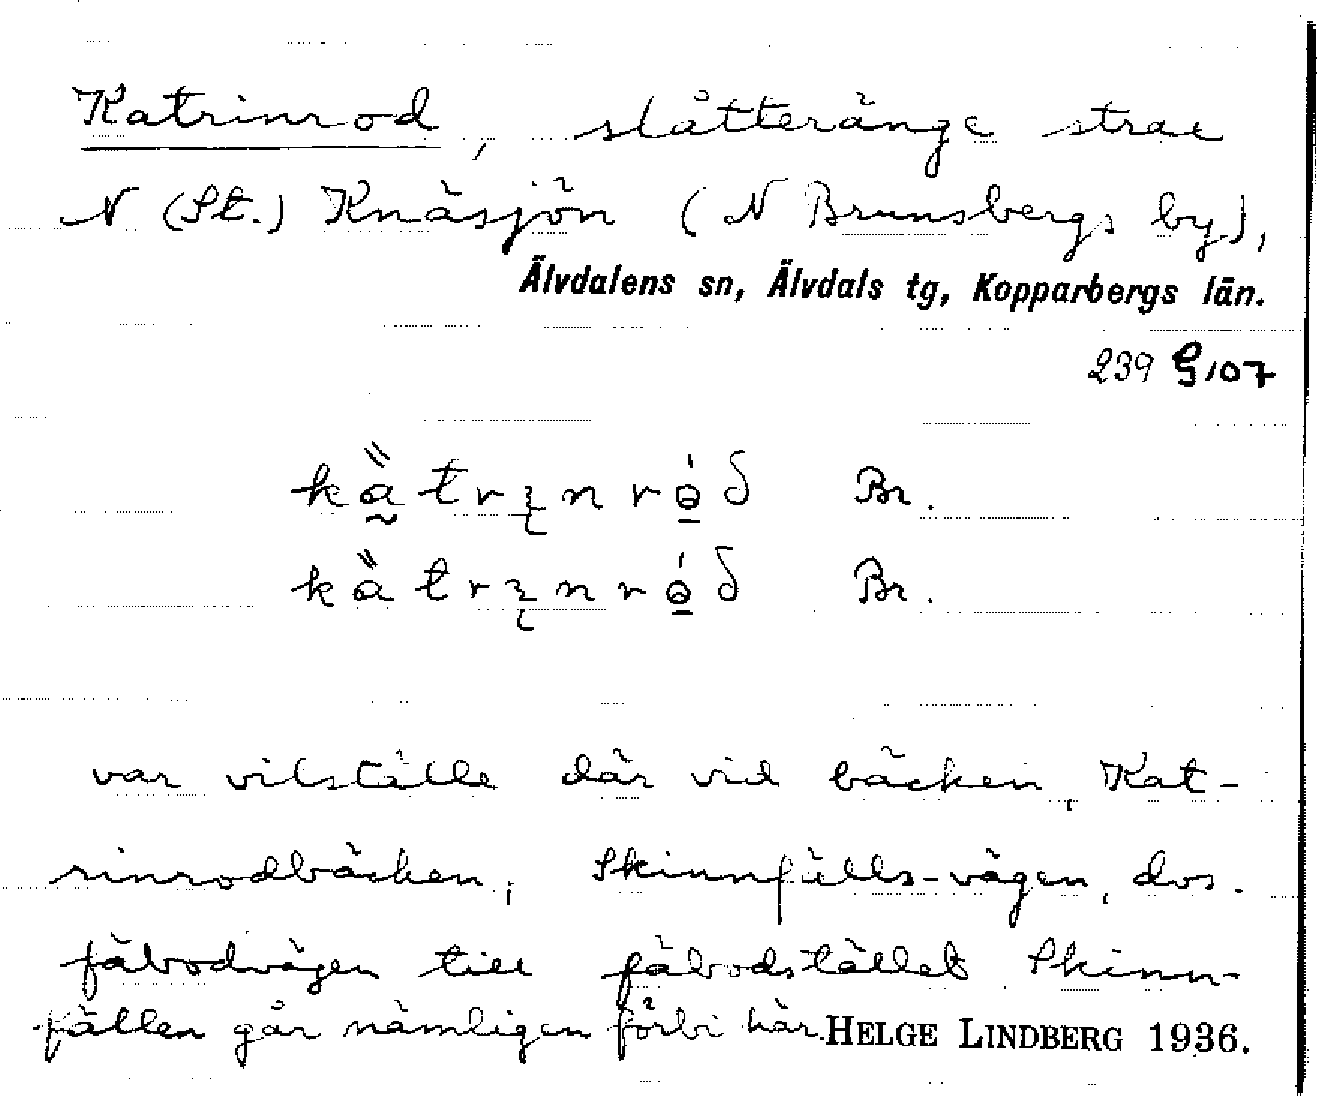 Katrinrod, slåtteränge strax
N (St.) Knäsjön (N Brunsbergs by),
Älvdalens sn, Älvdals tg, Kopparbergs län.
239 107
Br.
Br.
var vilställe där vid bäcken, Kat-
rinrodbäcken; Skinnfälls-vägen, dvs.
fäbodvägen till fäbodstället Skinn-
fällen går nämligen förbi här. HELGE LINDBERG 1936.